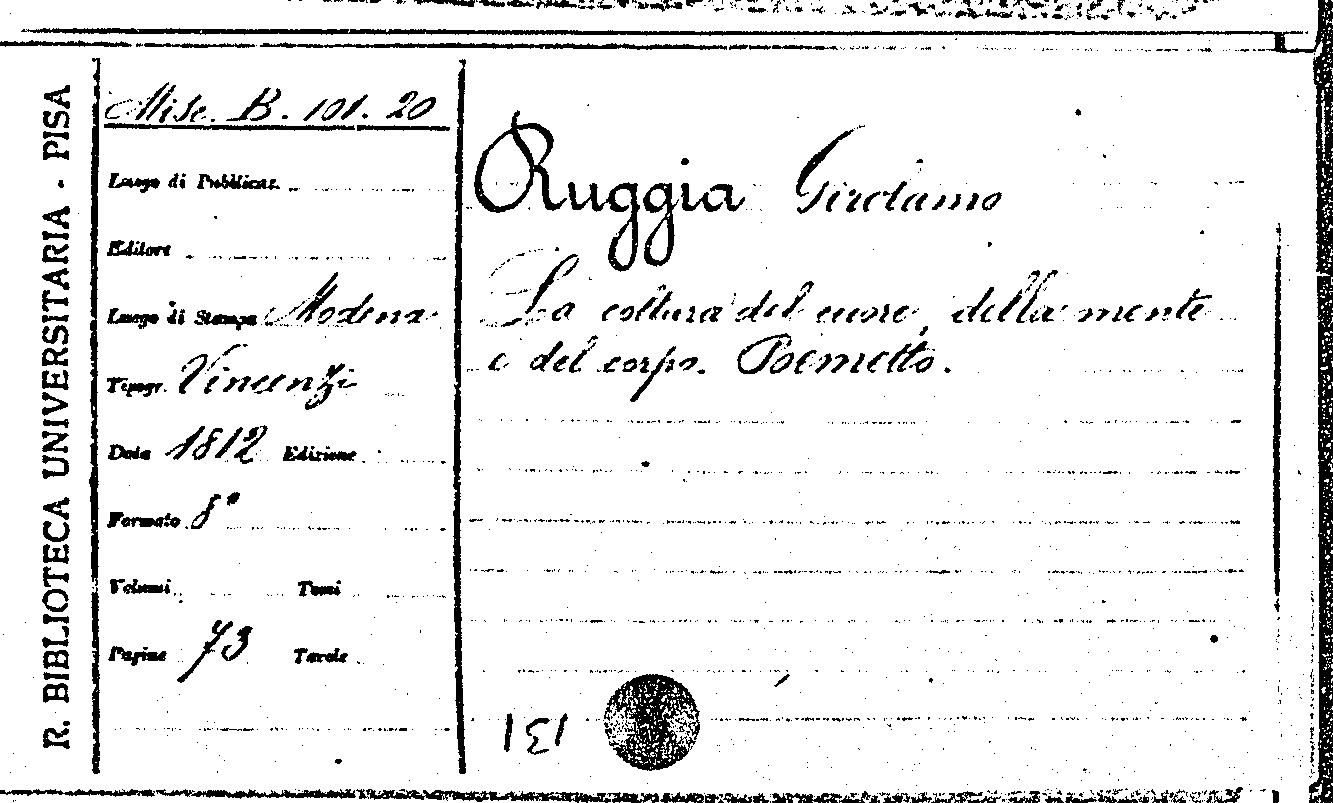 R. BIBLIOTECA UNIVERSITARIA - PISA
Misc. B. 101. 20
Luogo di Pubblicaz.
Editore
Luogo di Stampa Modena
Tipogr. Vincenzi
Data 1812 Edizione
Formato 8°
Volumi Tomi
Pagine 73 Tavole
Ruggia Girolamo
La coltura del cuore, della mente
e del corpo. Poemetto.
131